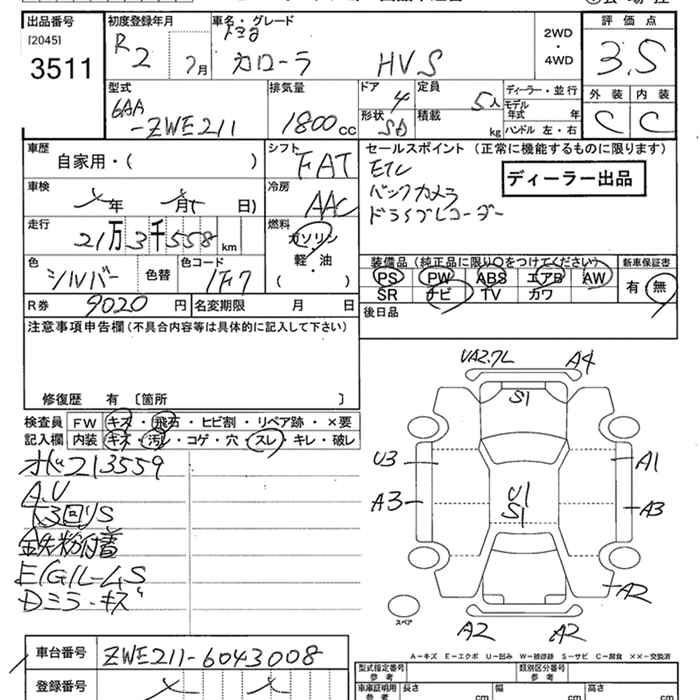 出品番号
[2045]
3511
初度登録年月
R2 7月
車名・グレード
トヨタ
カローラ HVS
2WD
・
4WD
評価点
3.5
外装 内装
C C
型式
6AA
-ZWE211
排気量
1800cc
ドア
4
形状
SD
定員
5人
積載
kg
ディーラー・並行
モデル
年式 年
ハンドル 左・右
車歴
自家用・( )
シフト
FAT
セールスポイント (正常に機能するものに限ります)
ETC
バックカメラ
ドライブレコーダー
ディーラー出品
車検
年 月( 日)
冷房
AAC
走行
21万3千558km
燃料
ガソリン
軽・油
( )
色
シルバー
色替
色コード
1F7
装備品 (純正品に限り○をつけてください)
PS PW ABS エアB AW
SR ナビ TV カワ
新車保証書
有・無
R券 9020円
名変期限 月 日
後日品
注意事項申告欄 (不具合内容等は具体的に記入して下さい)
修復歴 有 〔箇所 〕
検査員
記入欄
FW キズ・飛石・ヒビ割・リペア跡・×要
内装 キズ・汚レ・コゲ・穴・スレ・キレ・破レ
213559
A.U
鉄粉付着
E/GルームS
Dミラーキズ
UA2.7L A4
S1
U3 A1
A3 U1 S1 A3
A2
A2 A2
スペア
A-キズ E-エクボ U-凹み W-補修跡 S-サビ C-腐食 ××-交換済
車台番号 ZWE211-6043008
登録番号
型式指定番号
参考
類別区分番号
参考
車庫証明用
参考
長さ cm
幅 cm
高さ cm